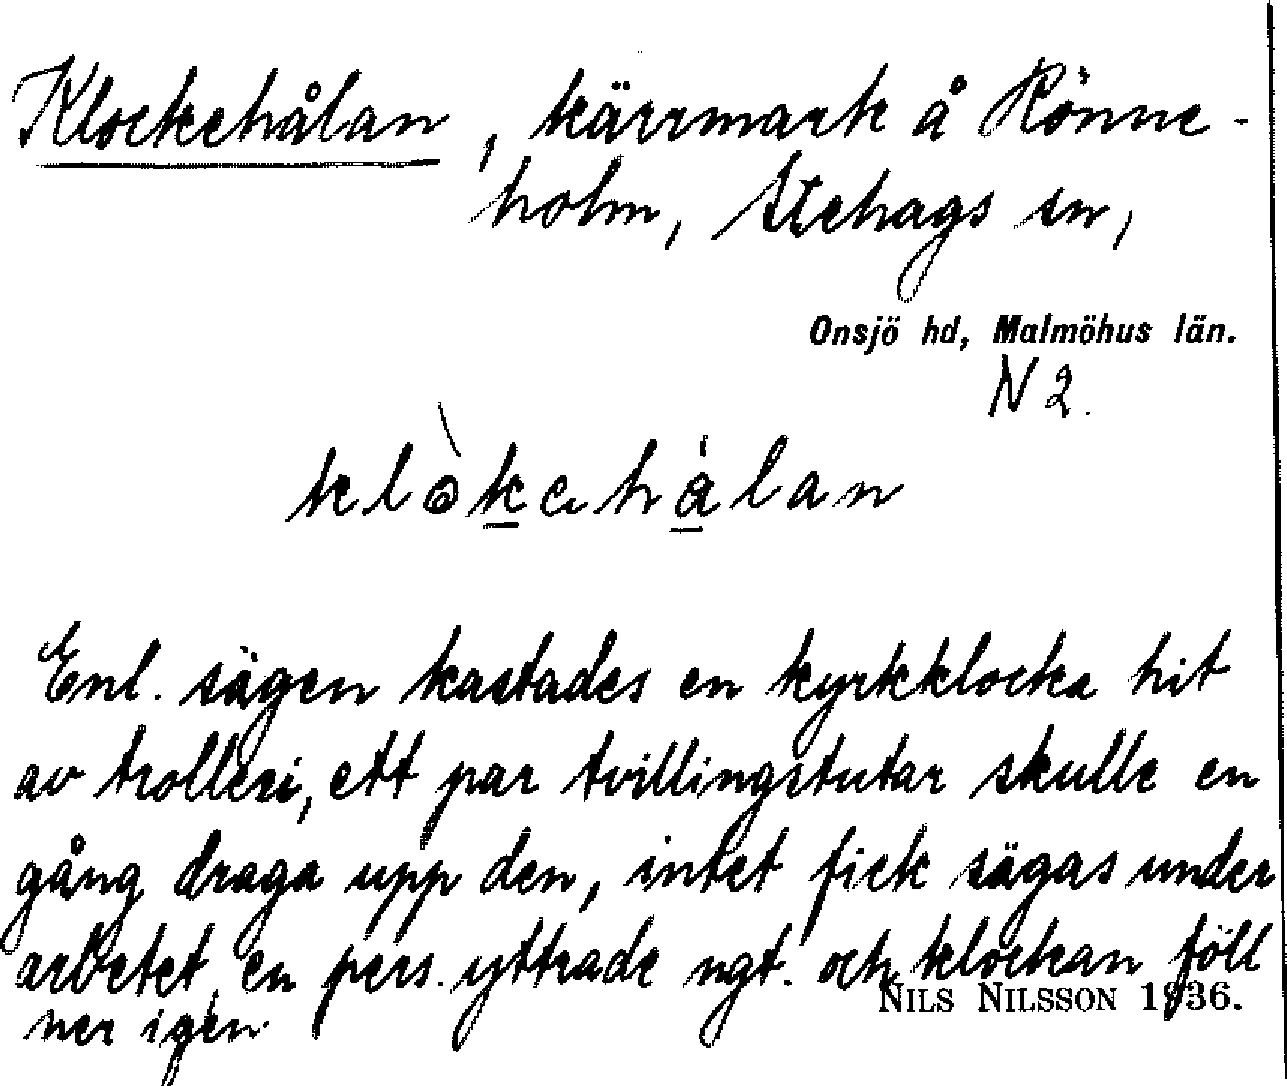 Klockehålan, kärrmark å Rönne-
holm, Stehags sn,
Onsjö hd, Malmöhus län.
N 2.
Enl. sägen kastades en kyrkklocka hit
av trolleri, ett par tvillingstutar skulle en
gång draga upp den, intet fick sägas under
arbetet, en pers. yttrade ngt. och klockan föll
ner igen.
NILS NILSSON 1936.